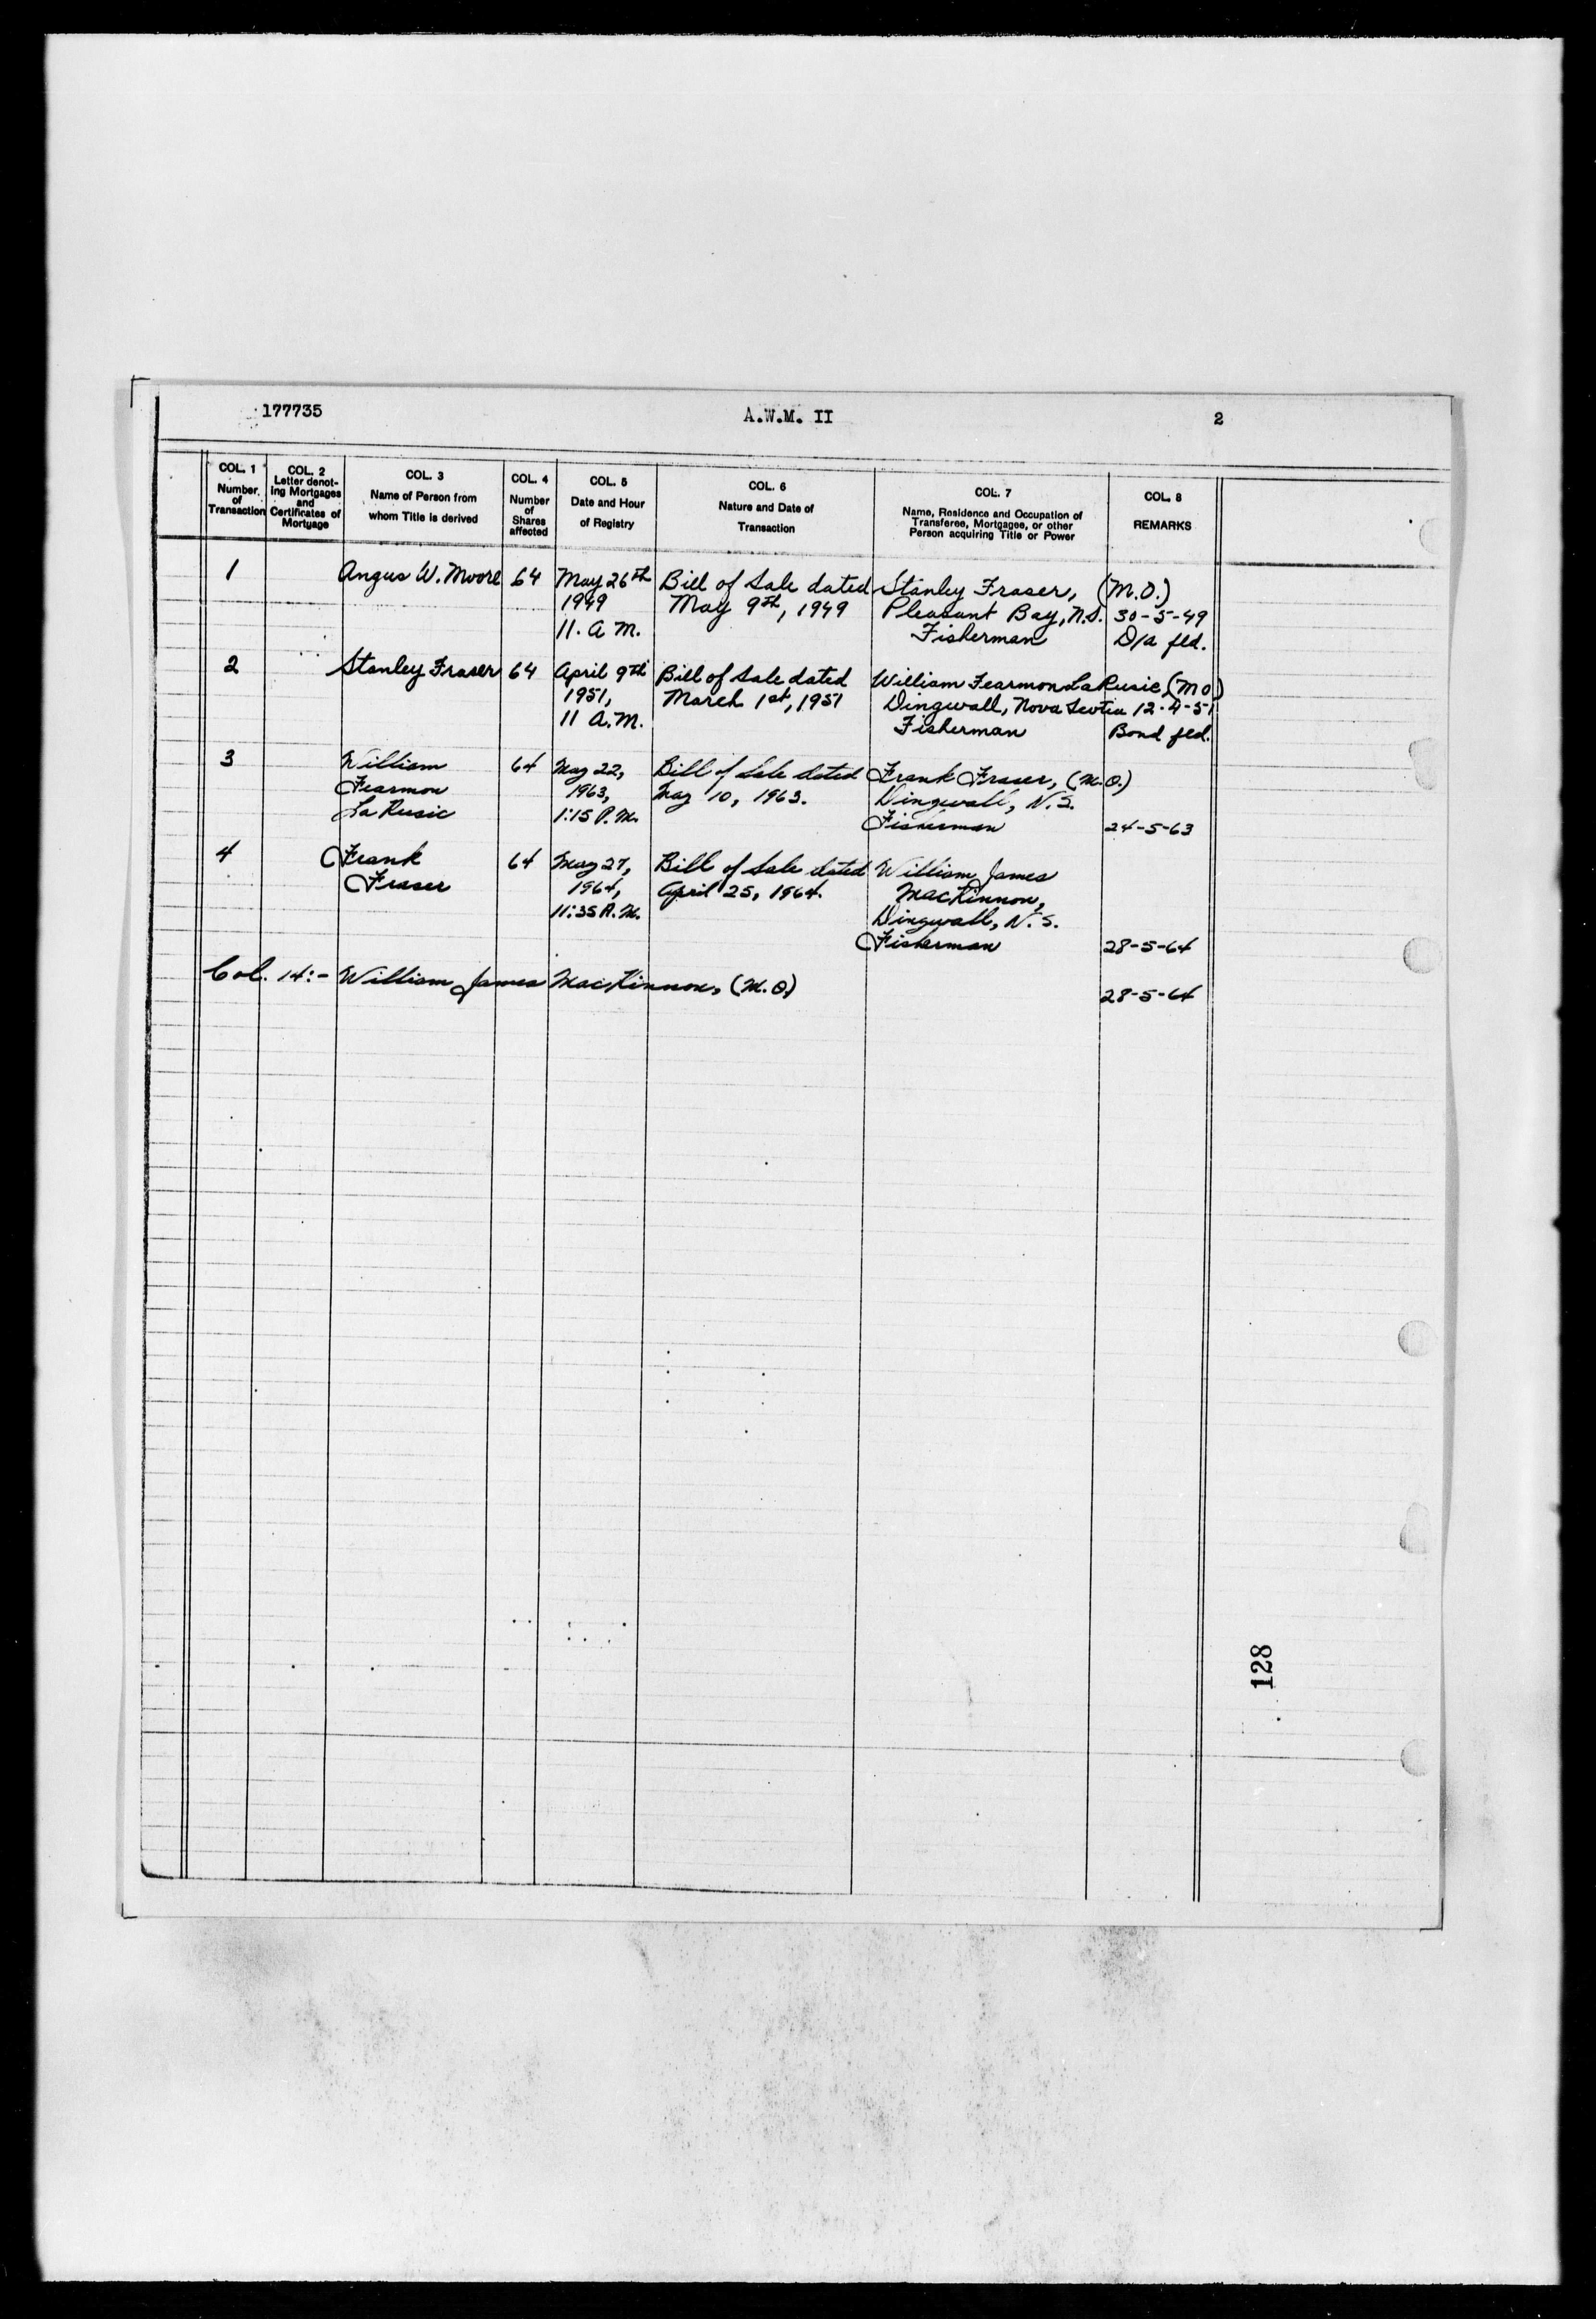 177735
A.W.M. II
2
COL. 1
Number
of
Transaction
COL. 2
Letter denot-
ing Mortgages
and
Certificates of
Mortgage
COL. 3
Name of Person from
whom Title is derived
COL. 4
Number
of
Shares
affected
COL. 5
Date and Hour
of Registry
COL. 6
Nature and Date of
Transaction
COL. 7
Name, Residence and Occupation of
Transferee, Mortgagee, or other
Person acquiring Title or Power
COL. 8
REMARKS
1
Angus W. Moore
64
May 26th
1949
11. A M.
Bill of Sale dated
May 9th, 1949
Stanley Fraser, (M.O.)
Pleasant Bay, N.S.
Fisherman
30-5-49
D/a fld.
2
Stanley Fraser
64
April 9th
1951,
11 A.M.
Bill of Sale dated
March 1st, 1951
William Fearmon LaRusic, (M O)
Dingwall, Nova Scotia
Fisherman
12-4-51
Bond fld.
3
William
Fearmon
LaRusic
64
May 22,
1963,
1:15 P.M.
Bill of Sale dated
May 10, 1963.
Frank Fraser, (M.O.)
Dingwall, N.S.
Fisherman
24-5-63
4
Frank
Fraser
64
May 27,
1964,
11:35 A.M.
Bill of Sale dated
April 25, 1964.
William James
MacKinnon,
Dingwall, N.S.
Fisherman
28-5-64
Col. 14:- William James MacKinnon, (M.O.)
28-5-64
128